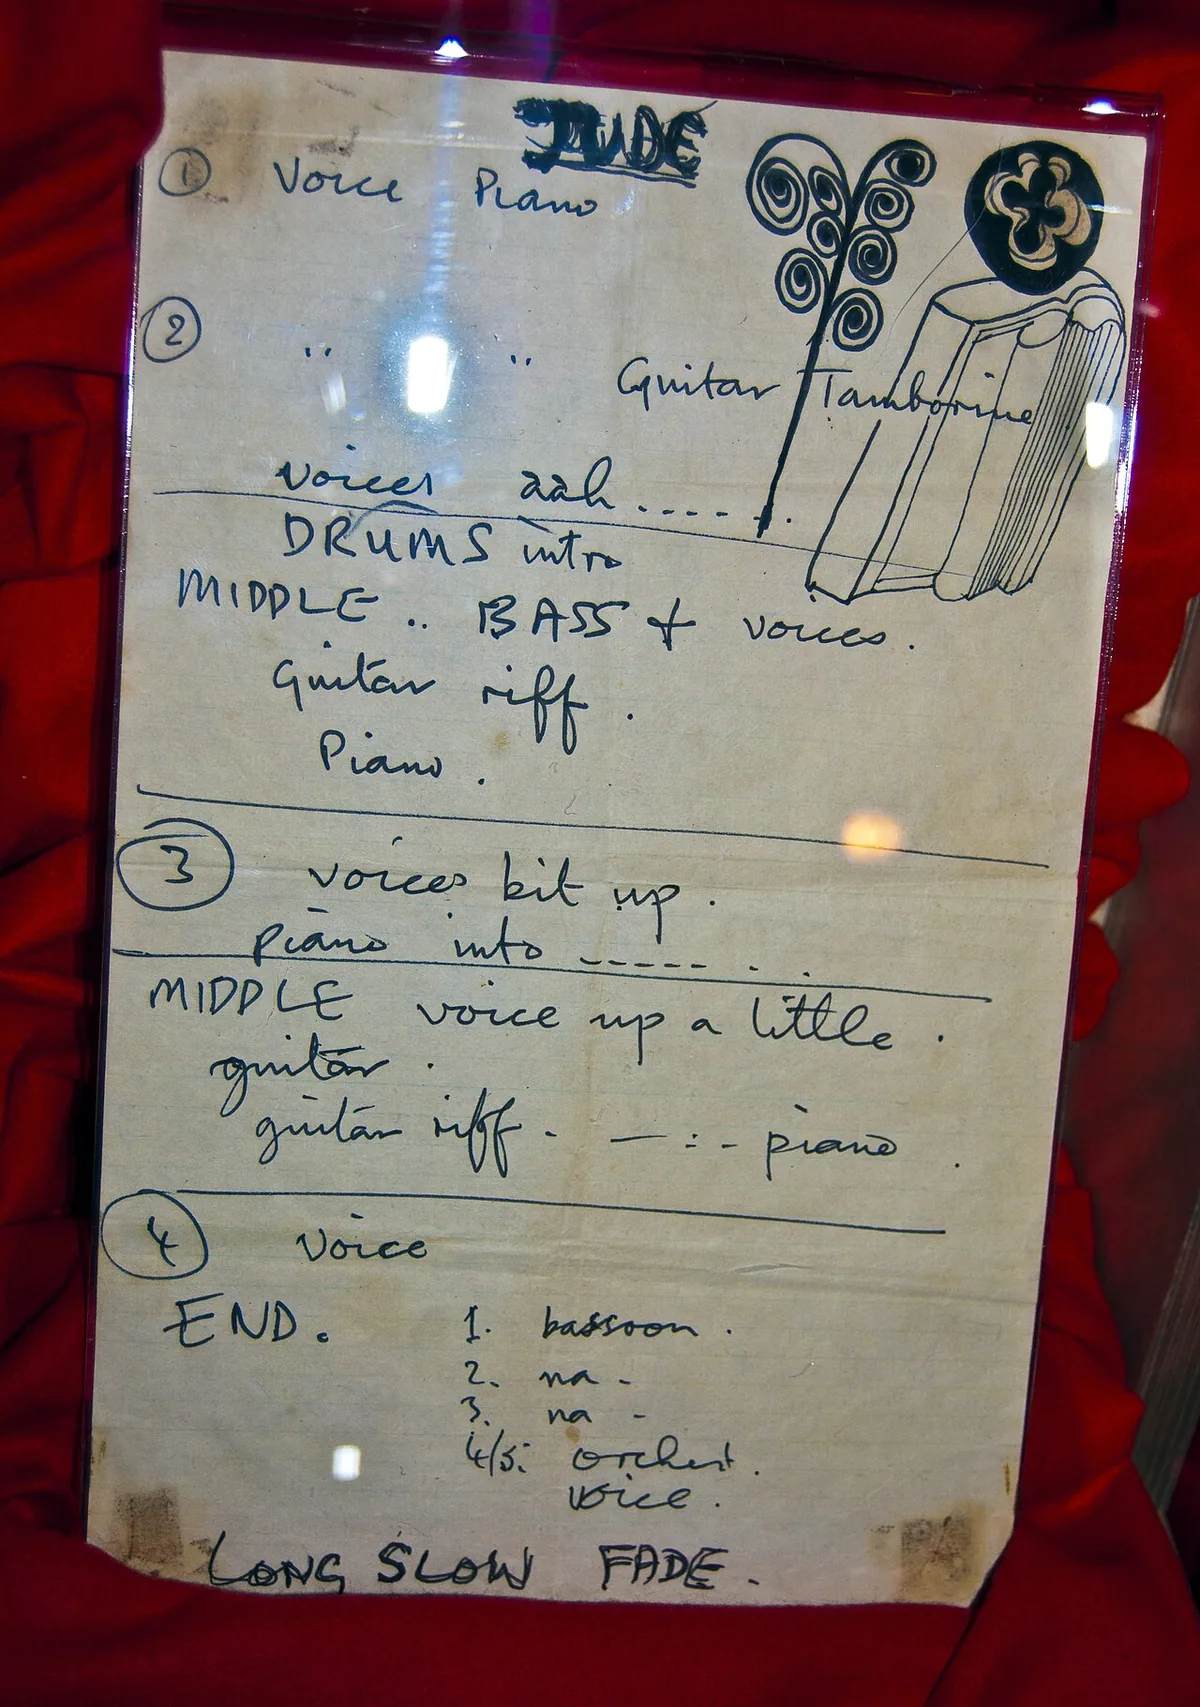 JUDE
① Voice Piano
② " " Guitar Tamborine
voices aah.....
DRUMS intro
MIDDLE .. BASS + voices.
Guitar riff.
Piano.
③ voices bit up.
piano into ----- . .
MIDDLE voice up a little.
guitar.
guitar riff - — : - piano.
④ Voice
END. 1. bassoon.
2. na -
3. na -
4/5: orchest.
voice.
LONG SLOW FADE.